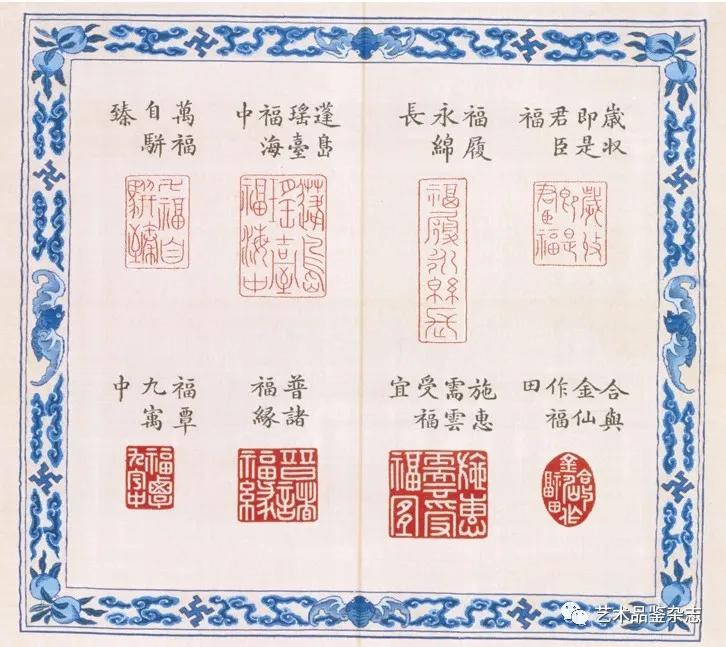 歲収
即是
君臣
福
福履
永綿
長
蓬島
瑤臺
福海
中
萬福
自駢
臻
歲收
即是
君臣福
福履永綿長
蓬島
瑤臺
福海中
福自
駢臻
合與
金仙
作福
田
施惠
需雲
受福
宜
普諸
福緣
福覃
九寓
中
合與
金仙作
福田
施惠
需雲受
福宜
普諸
福緣
福覃
九宇中
艺术品鉴杂志